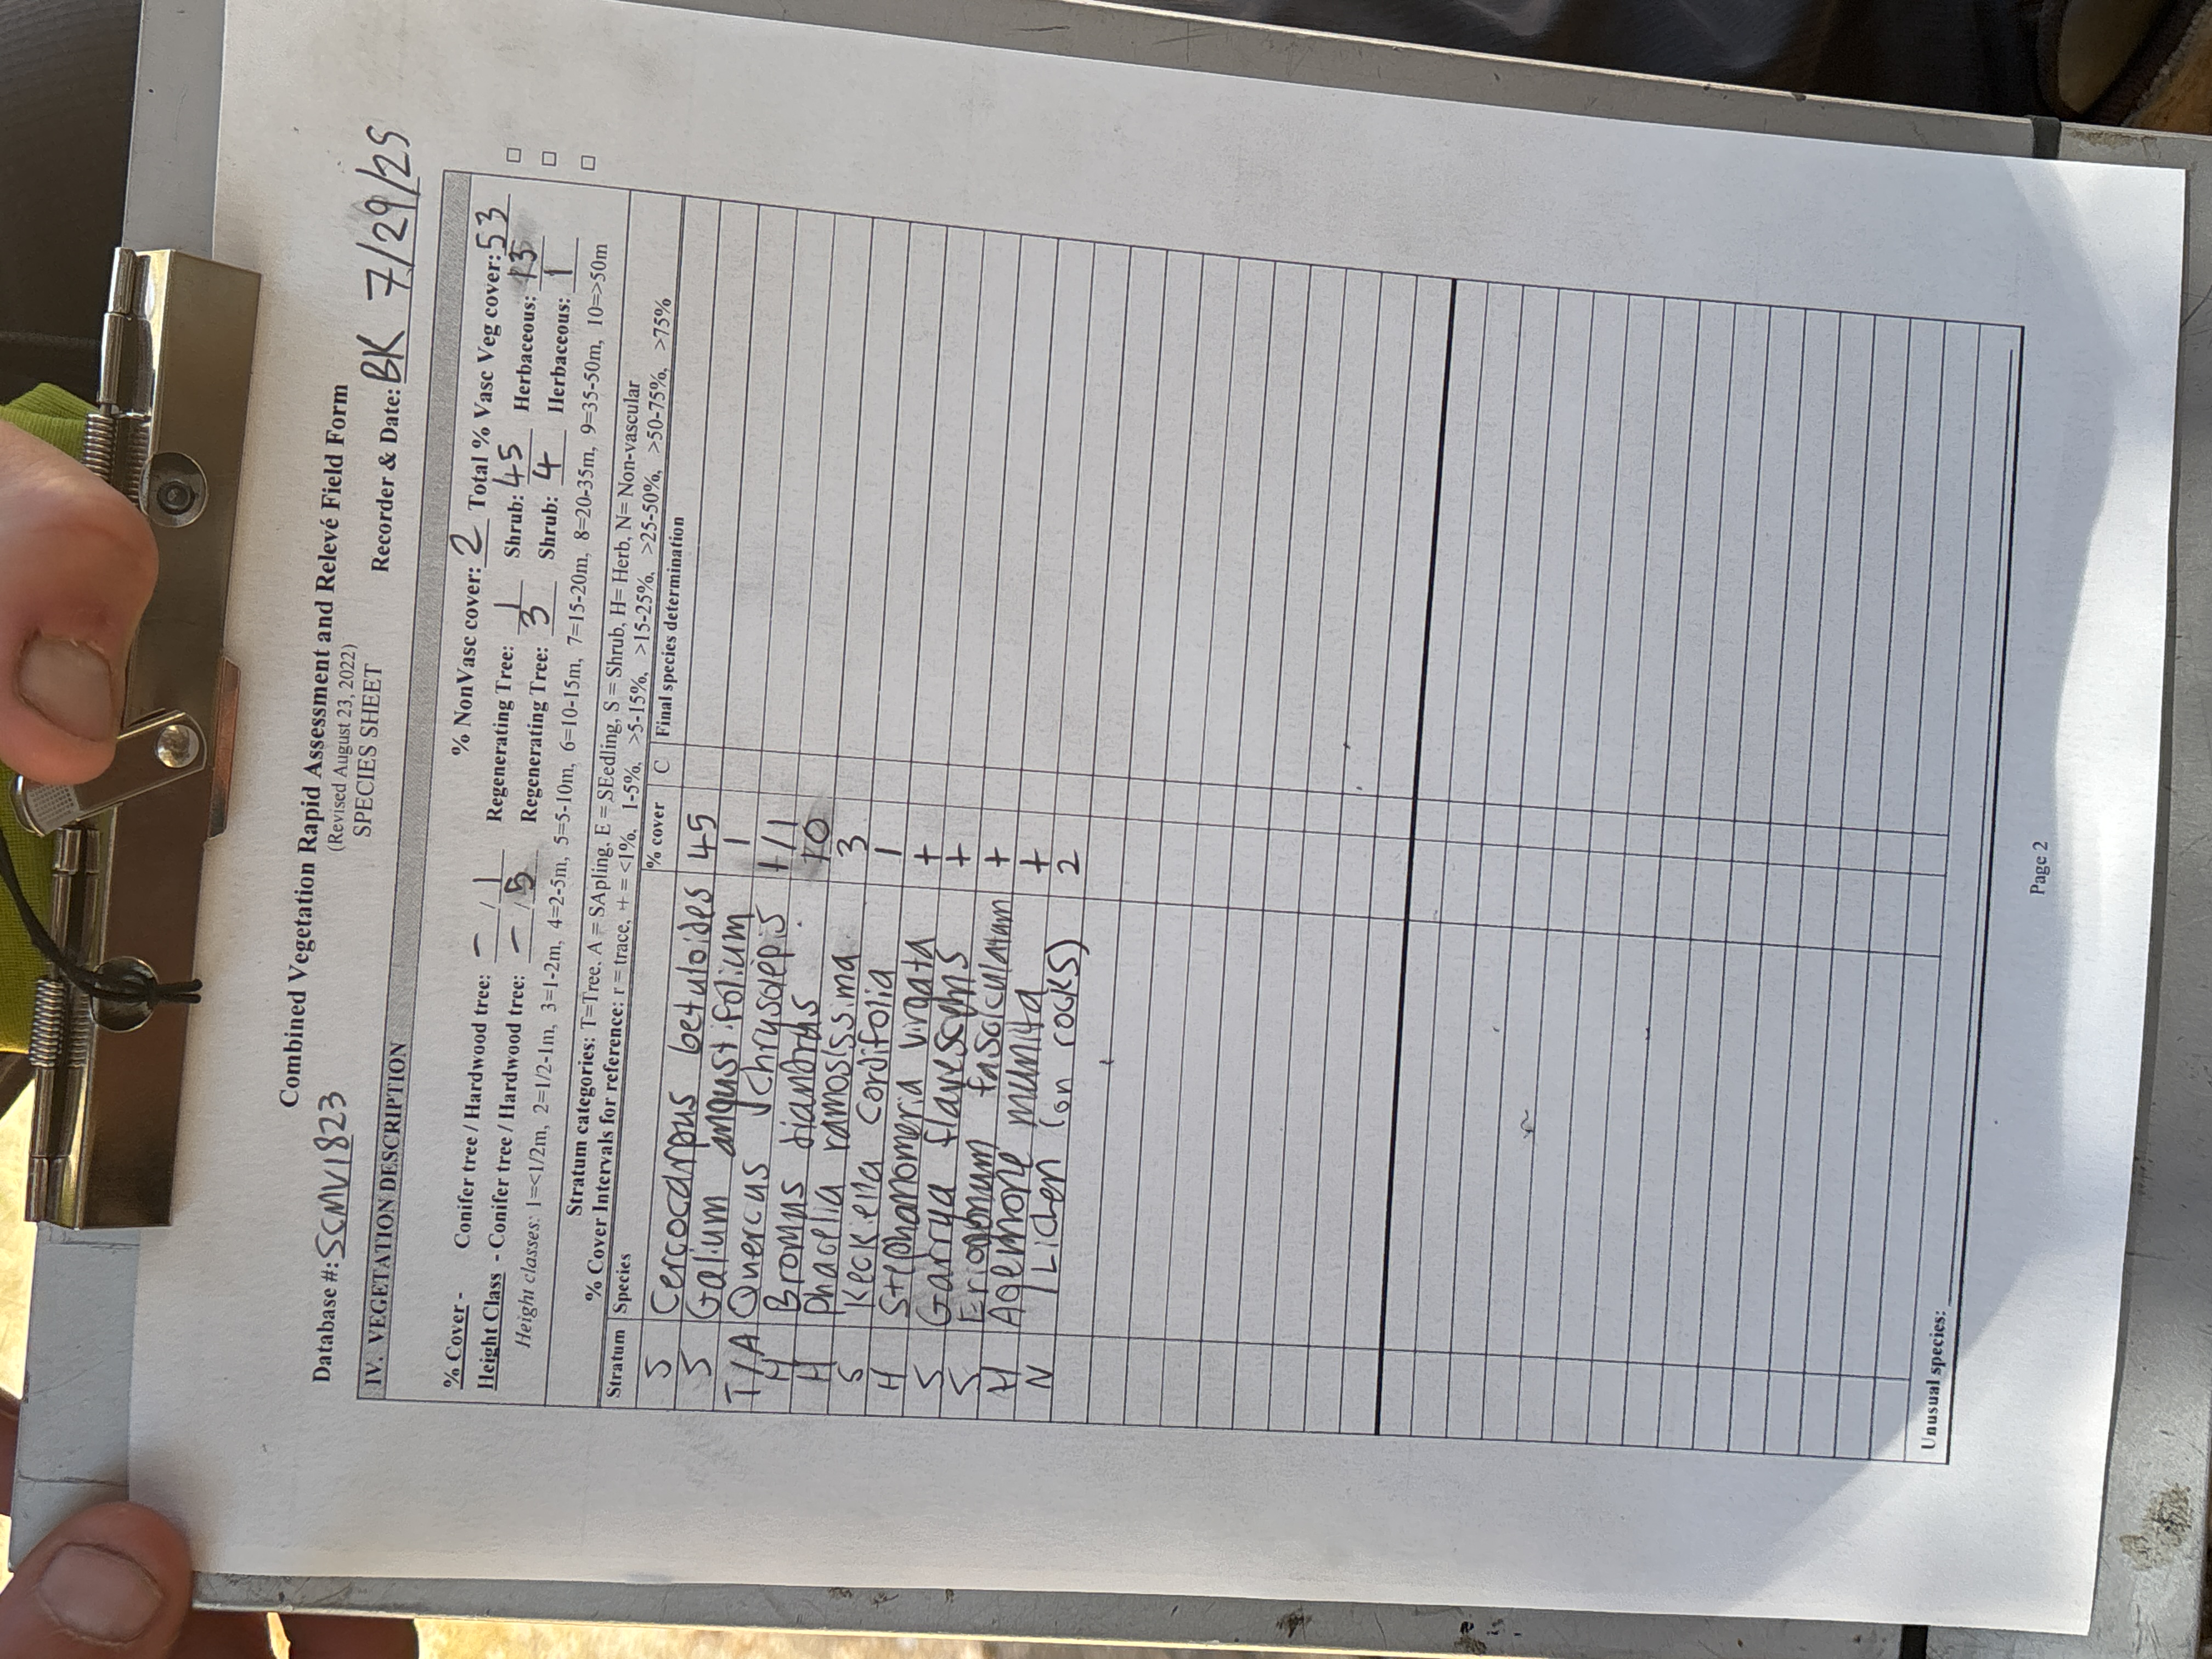 Combined Vegetation Rapid Assessment and Relevé Field Form
(Revised August 23, 2022)
SPECIES SHEET
Database #: SCMV1823 Recorder & Date: BK 7/29/25
IV. VEGETATION DESCRIPTION
% NonVasc cover: 2 Total % Vasc Veg cover: 53
% Cover - Conifer tree / Hardwood tree: - / 1 Regenerating Tree: 1 Shrub: 45 Herbaceous: 13
Height Class - Conifer tree / Hardwood tree: - / 5 Regenerating Tree: 3 Shrub: 4 Herbaceous: 1
Height classes: 1=<1/2m, 2=1/2-1m, 3=1-2m, 4=2-5m, 5=5-10m, 6=10-15m, 7=15-20m, 8=20-35m, 9=35-50m, 10=>50m
Stratum categories: T=Tree, A = SApling, E = SEedling, S = Shrub, H= Herb, N= Non-vascular
% Cover Intervals for reference: r = trace, + = <1%, 1-5%, >5-15%, >15-25%, >25-50%, >50-75%, >75%
Stratum Species % cover C Final species determination
S Cercocarpus betuloides 45
S Galium angustifolium 1
T/A Quercus chrysolepis 1/1
H Bromus diandrus 10
H Phacelia ramosissima 3
S Keckiella cordifolia 1
H Stephanomeria virgata +
S Garrya flavescens +
S Eriogonum fasciculatum +
H Agemone munita +
N Lichen (on rocks) 2
Unusual species:
Page 2